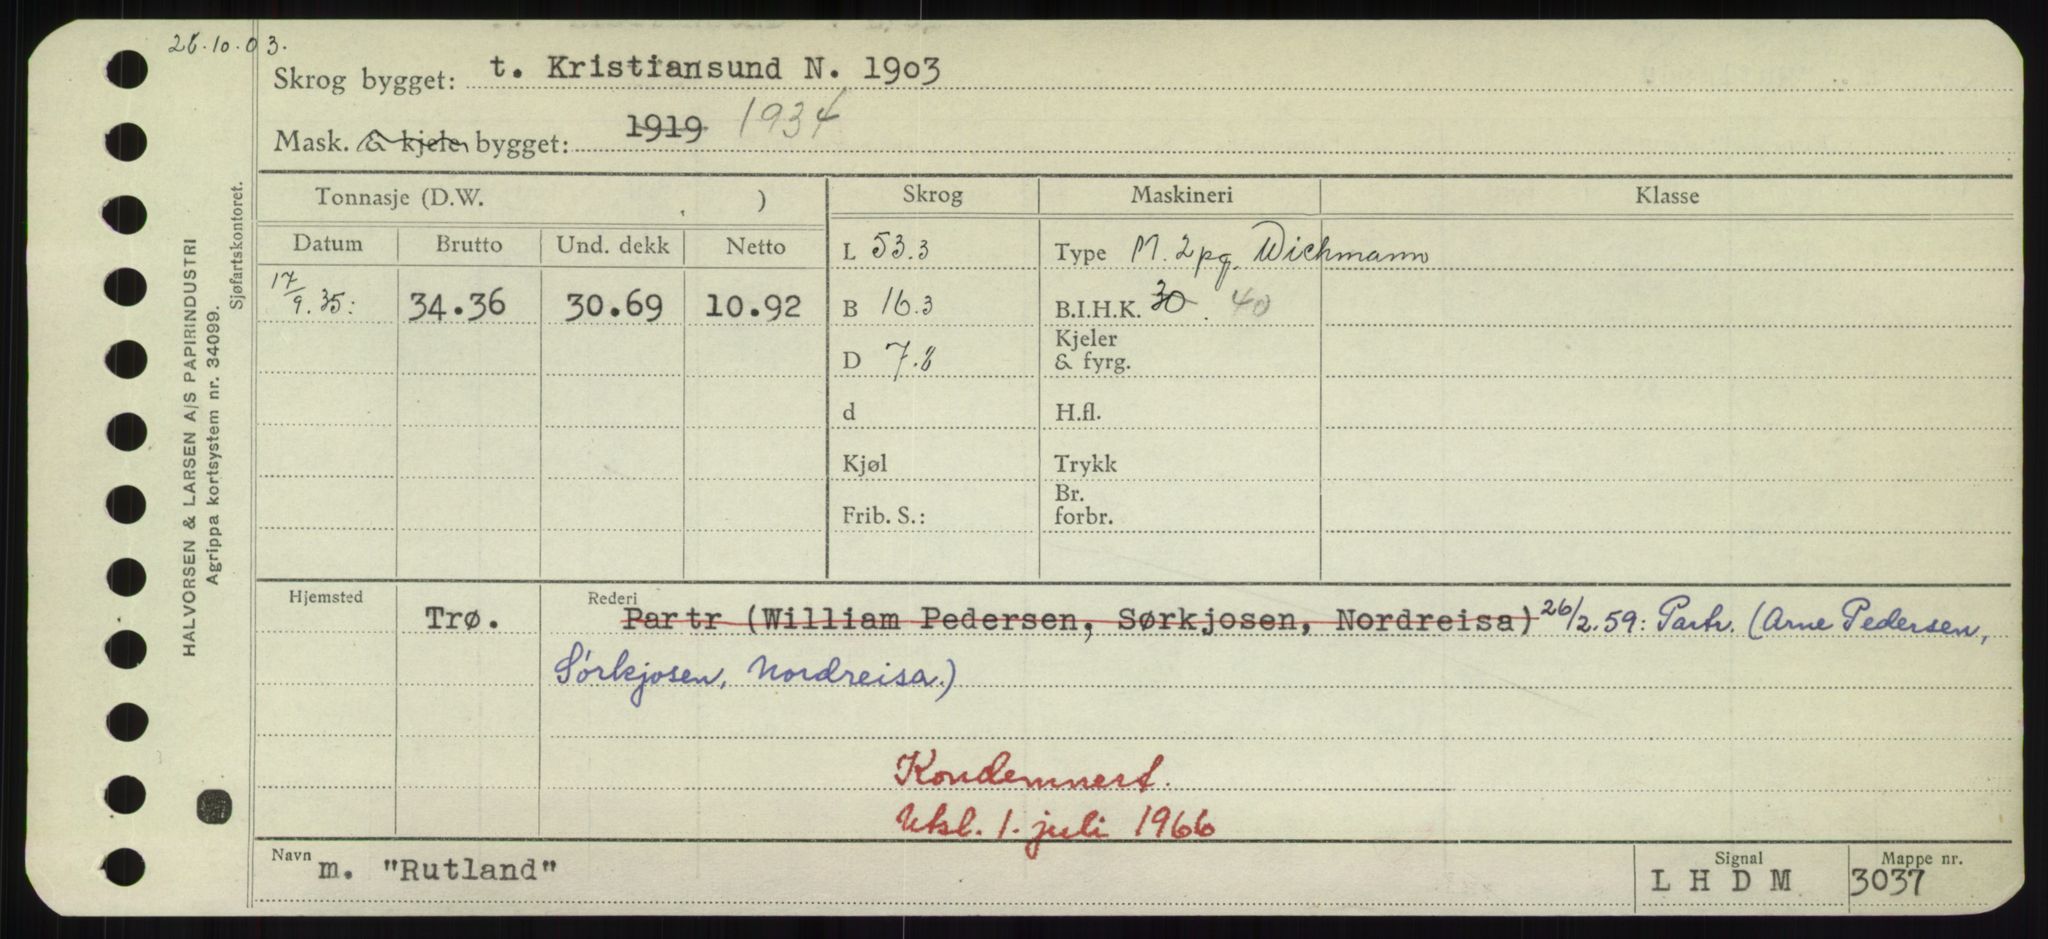 26.10.03.
Skrog bygget: t. Kristiansund N. 1903
Mask. & kjele bygget: 1919 1934
Tonnasje (D.W. ) Skrog Maskineri Klasse
Datum Brutto Und. dekk Netto
L 53.3 Type M. 2pg. Wichmann
17/9.35: 34.36 30.69 10.92 B 16.3 B.I.H.K. 30. 40
D 7.8 Kjeler
& fyrg.
d H.fl.
Kjøl Trykk
Frib. S.: Br.
forbr.
Hjemsted Rederi
Trø. Partr (William Pedersen, Sørkjosen, Nordreisa) 26/2.59: Partr. (Arne Pedersen,
Sørkjosen, Nordreisa.)
Kondemnert.
Utsl. 1. juli 1966
Navn m. "Rutland" Signal Mappe nr.
L H D M 3037
HALVORSEN & LARSEN A/S PAPIRINDUSTRI
Agrippa kortsystem nr. 34099.
Sjøfartskontoret.